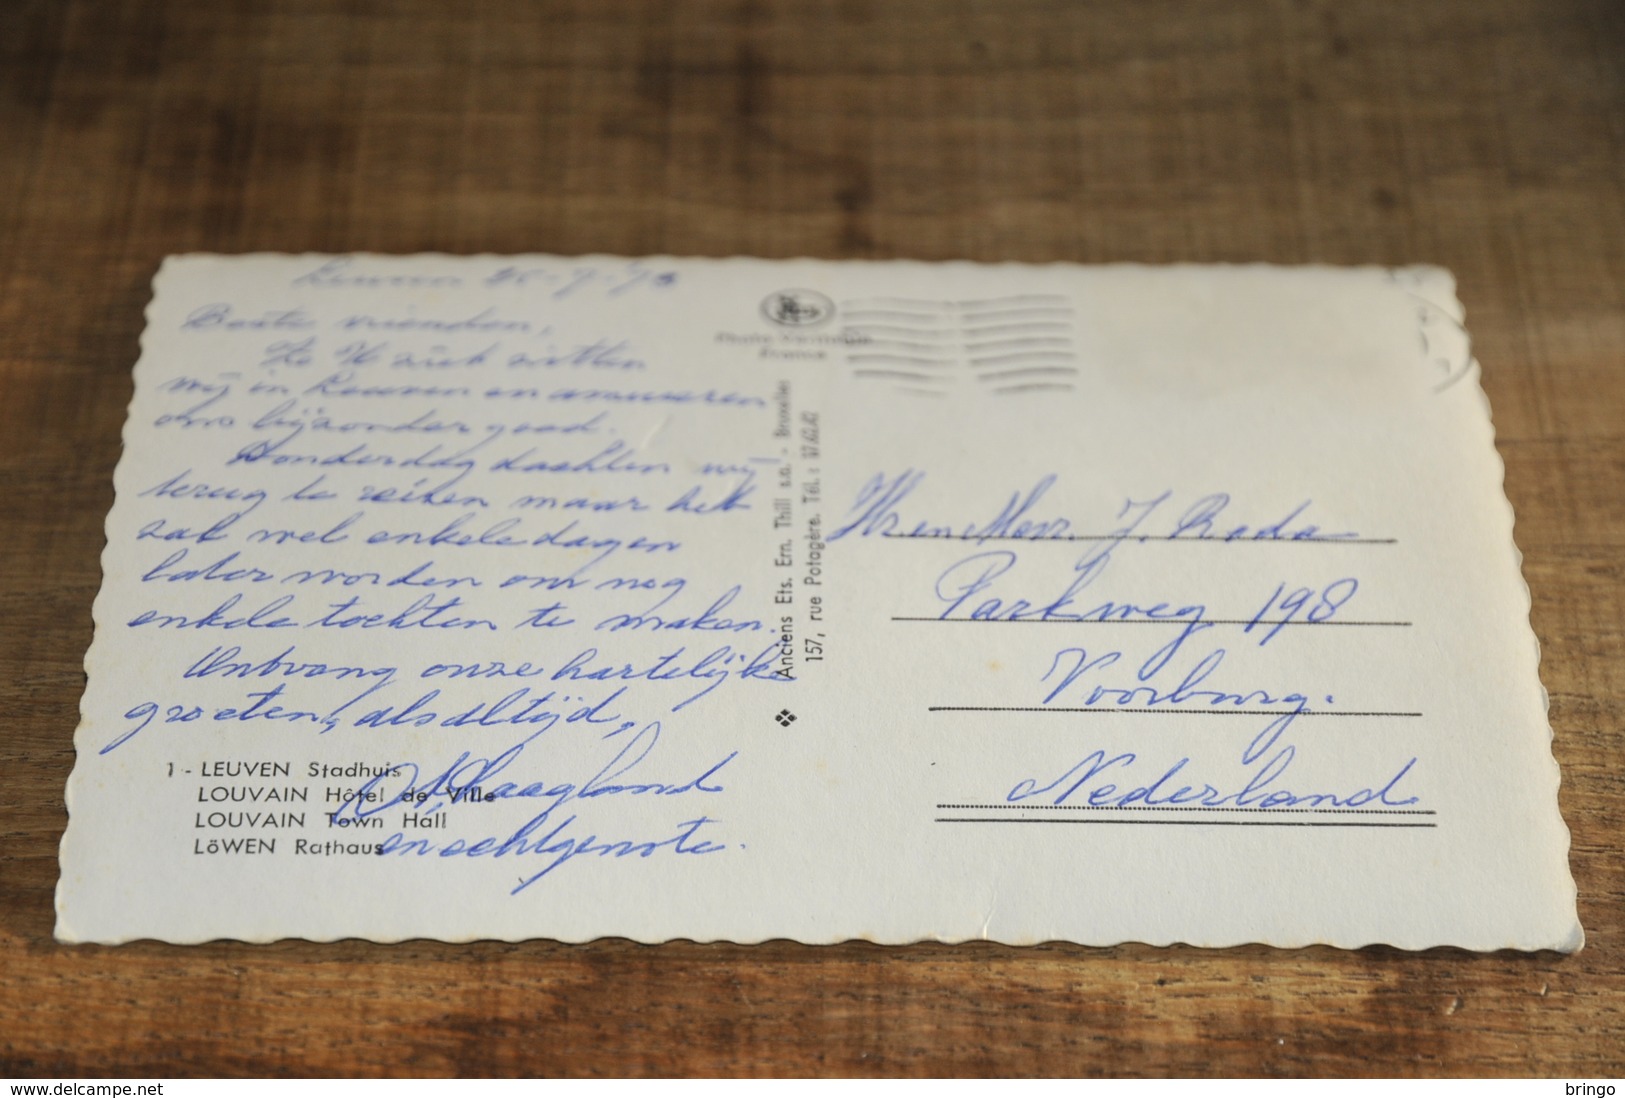 Beste vrienden,
zitten
wij in Leuven en amuseren
ons bijzonder goed.
Donderdag dachten wij
terug te reizen maar het
zal wel enkele dagen
later worden om nog
enkele tochten te maken.
Ontvang onze hartelijke
groeten, als altijd,
Haagland
en echtgenote.
1 - LEUVEN Stadhuis
LOUVAIN Hôtel de Ville
LOUVAIN Town Hall
LöWEN Rathaus
Anciens Ets. Ern. Thill s.a. - Bruxelles
157, rue Potagère. Tél.:
Hr en Mevr. J. Roda
Parkweg 198
Voorburg.
Nederland
delcampe.net
bringo